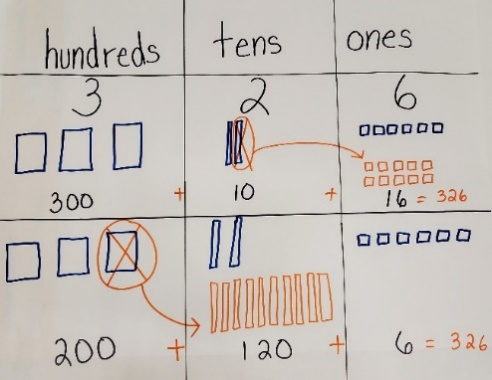 hundreds tens ones
3 2 6
300 + 10 + 16 = 326
200 + 120 + 6 = 326